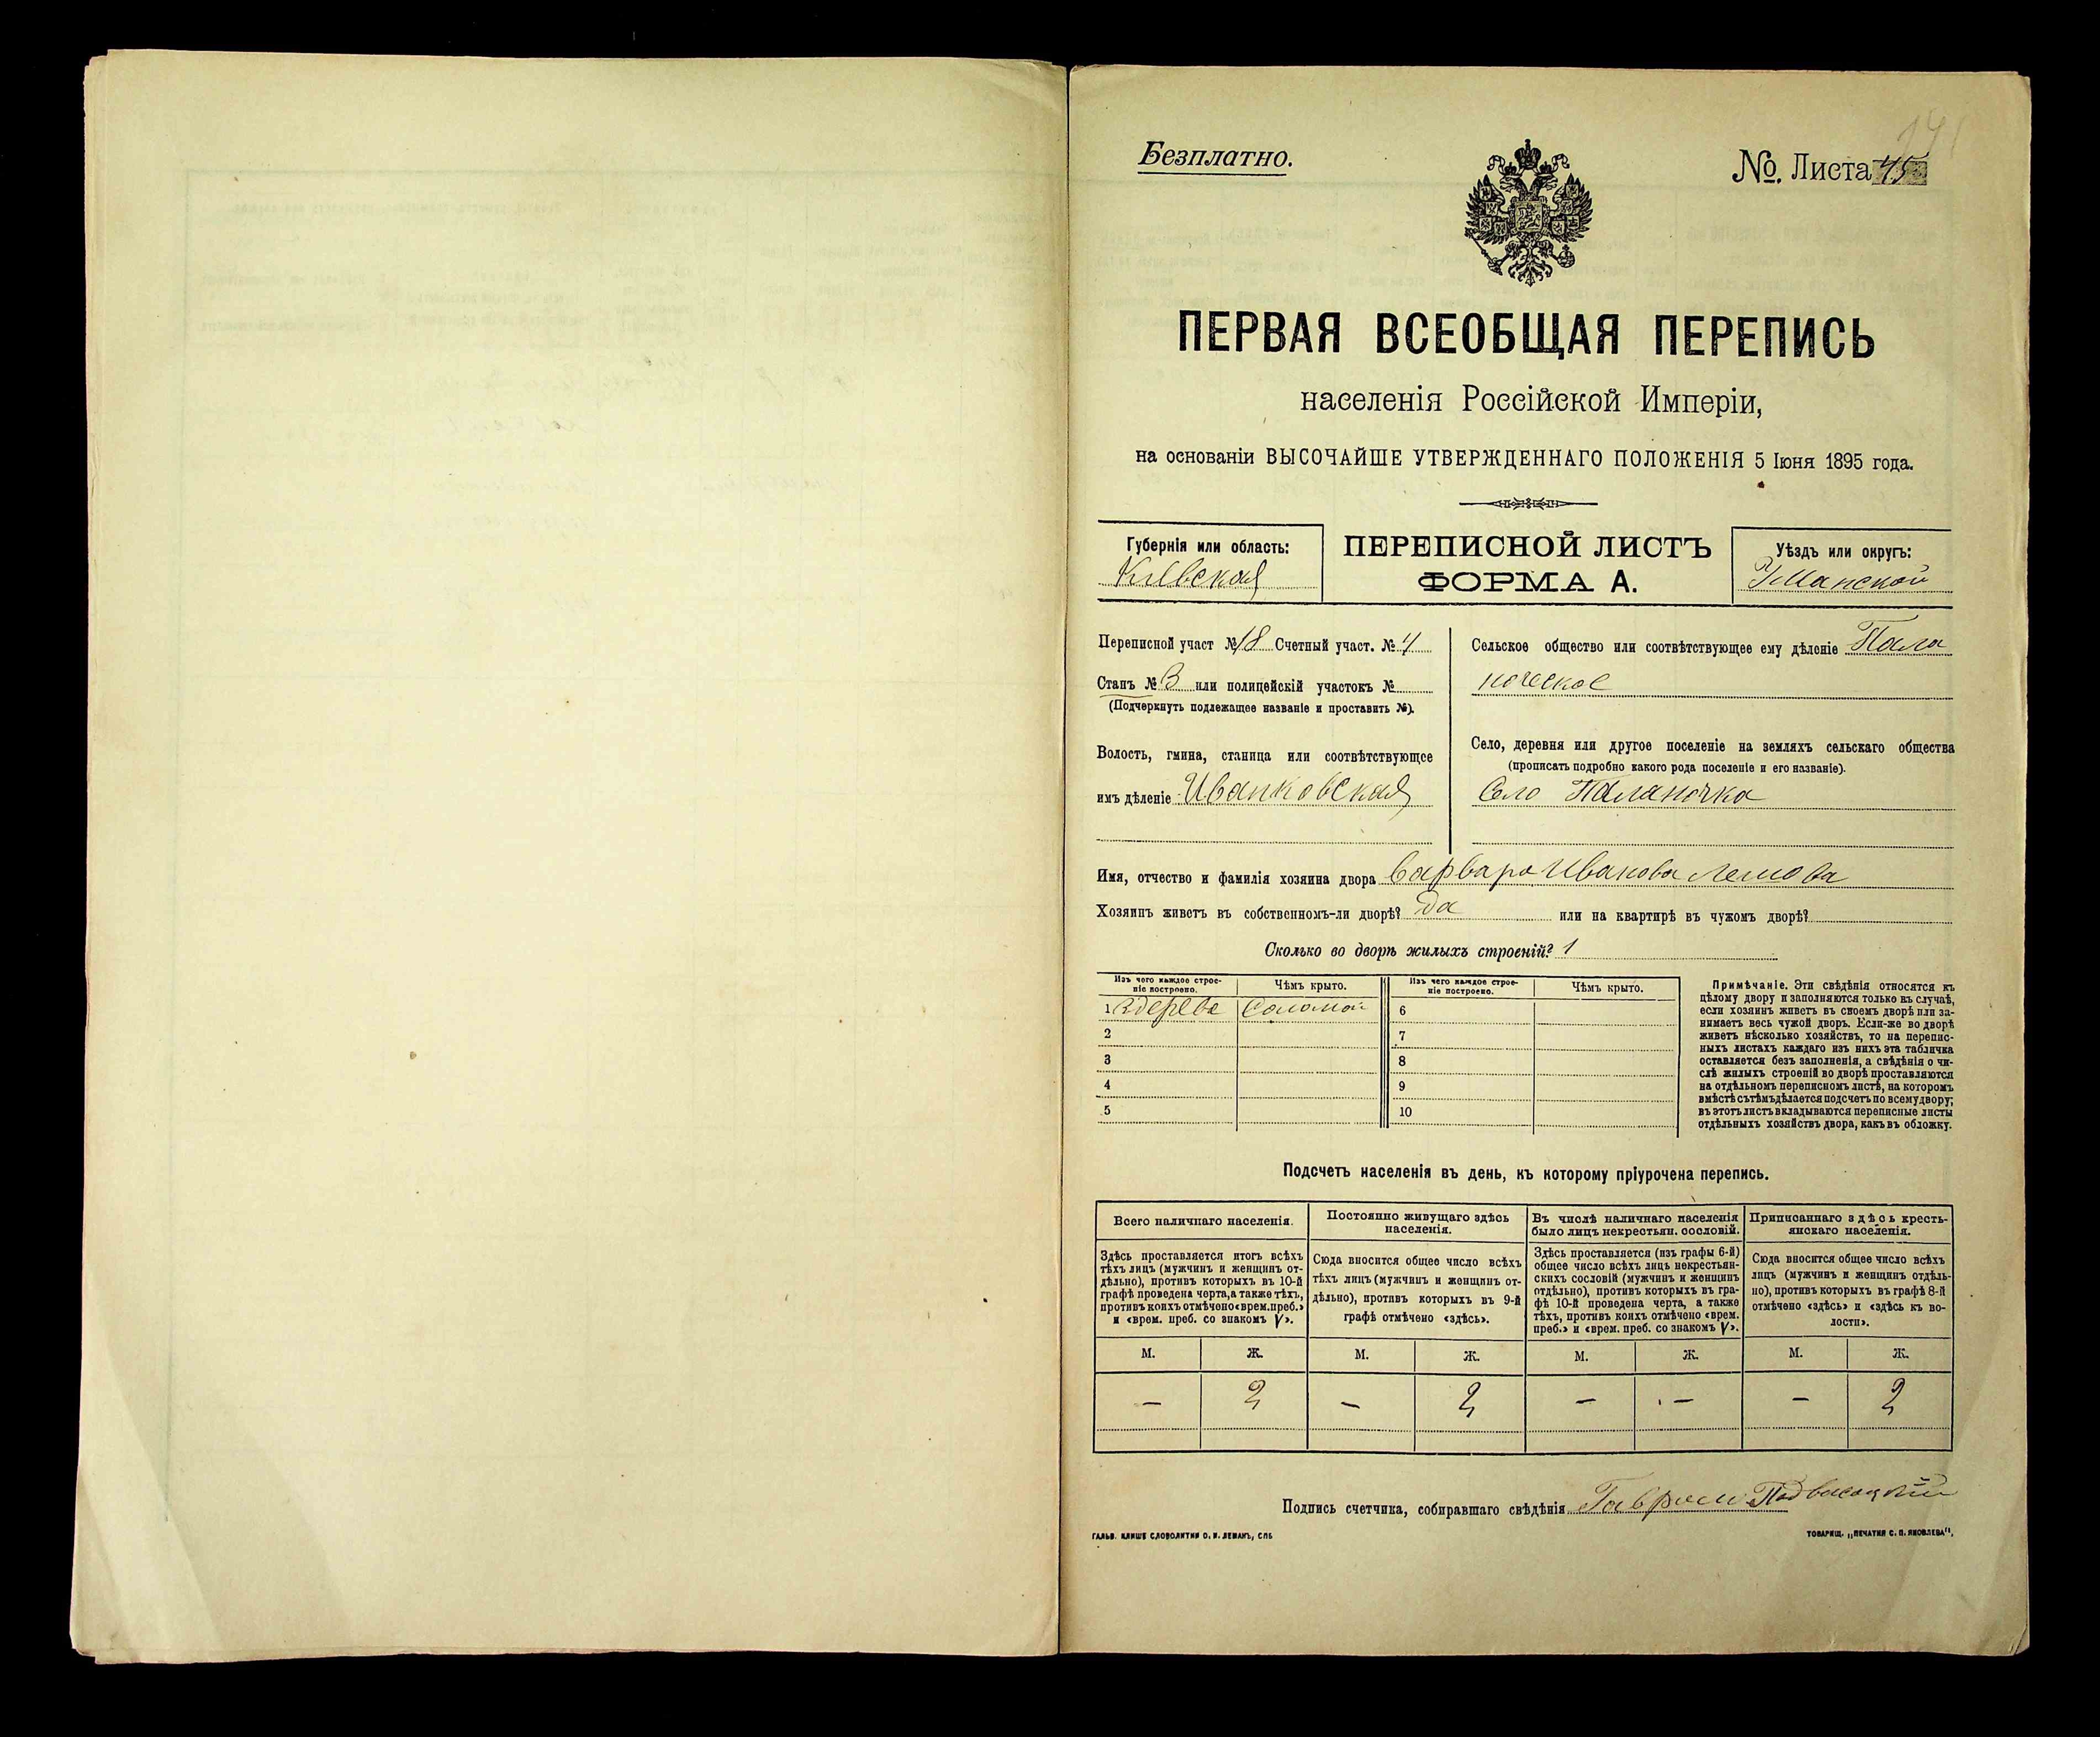 Безплатно.
№. Листа 45
ПЕРВАЯ ВСЕОБЩАЯ ПЕРЕПИСЬ
населенія Россійской Имперіи,
на основаніи ВЫСОЧАЙШЕ УТВЕРЖДЕННАГО ПОЛОЖЕНІЯ 5 Іюня 1895 года.
Губернія или область:
Кіевская
ПЕРЕПИСНОЙ ЛИСТЪ
ФОРМА А.
Уѣздъ или округъ:
Уманской
Переписной участ № 18 Счетный участ. № 4
Станъ № 3 или полицейскій участокъ №
(Подчеркнуть подлежащее названіе и проставить №).
Волость, гмина, станица или соотвѣтствующее
имъ дѣленіе Иванковская
Сельское общество или соотвѣтствующее ему дѣленіе Пала
ночское
Село, деревня или другое поселеніе на земляхъ сельскаго общества
(прописать подробно какого рода поселеніе и его названіе).
Село Паланочка
Имя, отчество и фамилія хозяина двора Варвара Иванова
Хозяинъ живетъ въ собственномъ-ли дворѣ? Да или на квартирѣ въ чужомъ дворѣ?
Сколько во дворѣ жилыхъ строеній? 1
Изъ чего каждое строе-
ніе построено.
Чѣмъ крыто.
Изъ чего каждое строе-
ніе построено.
Чѣмъ крыто.
1 здерева Соломой 6
2 7
3 8
4 9
5 10
Примѣчаніе. Эти свѣдѣнія относятся къ
цѣлому двору и заполняются только въ случаѣ,
если хозяинъ живетъ въ своемъ дворѣ или за-
нимаетъ весь чужой дворъ. Если-же во дворѣ
живетъ нѣсколько хозяйствъ, то на перепис-
ныхъ листахъ каждаго изъ нихъ эта табличка
оставляется безъ заполненія, а свѣдѣнія о чи-
слѣ жилыхъ строеній во дворѣ проставляются
на отдѣльномъ переписномъ листѣ, на которомъ
вмѣстѣ съ тѣмъ дѣлается подсчетъ по всему двору;
въ этотъ листъ вкладываются переписные листы
отдѣльныхъ хозяйствъ двора, какъ въ обложку.
Подсчетъ населенія въ день, къ которому пріурочена перепись.
Всего наличнаго населенія.
Здѣсь проставляется итогъ всѣхъ
тѣхъ лицъ (мужчинъ и женщинъ от-
дѣльно), противъ которыхъ въ 10-й
графѣ проведена черта, а также тѣхъ,
противъ коихъ отмѣчено «врем. преб.»
и «врем. преб. со знакомъ V».
Постоянно живущаго здѣсь
населенія.
Сюда вносится общее число всѣхъ
тѣхъ лицъ (мужчинъ и женщинъ от-
дѣльно), противъ которыхъ въ 9-й
графѣ отмѣчено «здѣсь».
Въ числѣ наличнаго населенія
было лицъ некрестьян. сословій.
Здѣсь проставляется (изъ графы 6-й)
общее число всѣхъ лицъ некрестьян-
скихъ сословій (мужчинъ и женщинъ
отдѣльно), противъ которыхъ въ гра-
фѣ 10-й проведена черта, а также
тѣхъ, противъ коихъ отмѣчено «врем.
преб.» и «врем. преб. со знакомъ V».
Приписаннаго здѣсь кресть-
янскаго населенія.
Сюда вносится общее число всѣхъ
лицъ (мужчинъ и женщинъ отдѣль-
но), противъ которыхъ въ графѣ 8-й
отмѣчено «здѣсь» и «здѣсь къ во-
лости».
М. Ж. М. Ж. М. Ж. М. Ж.
— 2 — 2 — — — 2
Подпись счетчика, собиравшаго свѣдѣнія Гаврыил Подвысоцкій
ГАЛЬВ. КЛИШЕ СЛОВОЛИТНИ О. И. ЛЕМАНЪ, СПБ
ТОВАРИЩ. „ПЕЧАТНЯ С. П. ЯКОВЛЕВА".